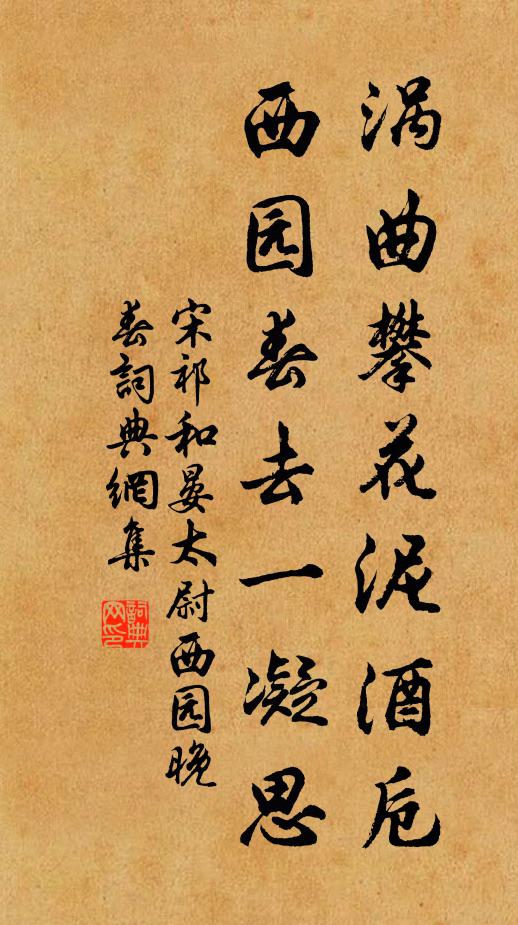 涡曲攀花泥酒卮
西园春去一凝思
宋祁和晏太尉西园晚
春詞典網集
詞典网印